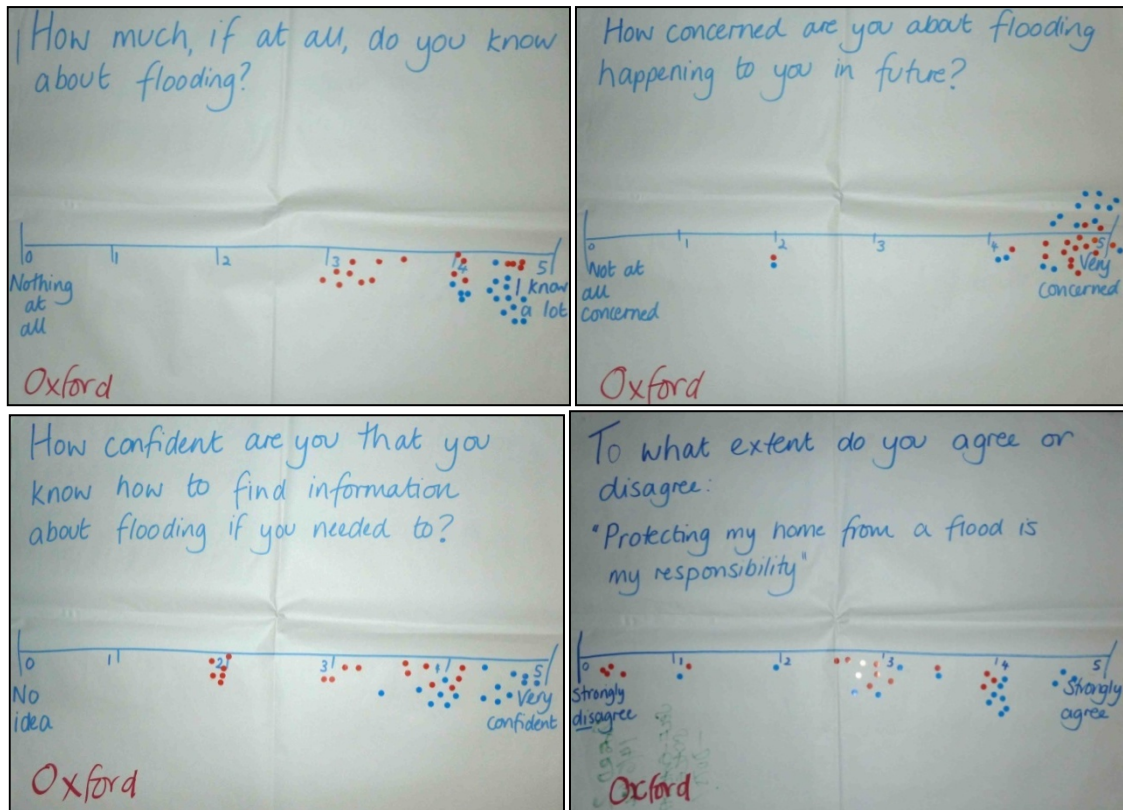 How much, if at all, do you know
about flooding?
0 1 2 3 4 5
Nothing
at
all
I know
a lot
Oxford
How concerned are you about flooding
happening to you in future?
0 1 2 3 4 5
Not at
all
concerned
Very
concerned
Oxford
How confident are you that you
know how to find information
about flooding if you needed to?
0 1 2 3 4 5
No
idea
Very
confident
Oxford
To what extent do you agree or
disagree:
"Protecting my home from a flood is
my responsibility"
0 1 2 3 4 5
Strongly
disagree
Strongly
agree
Oxford